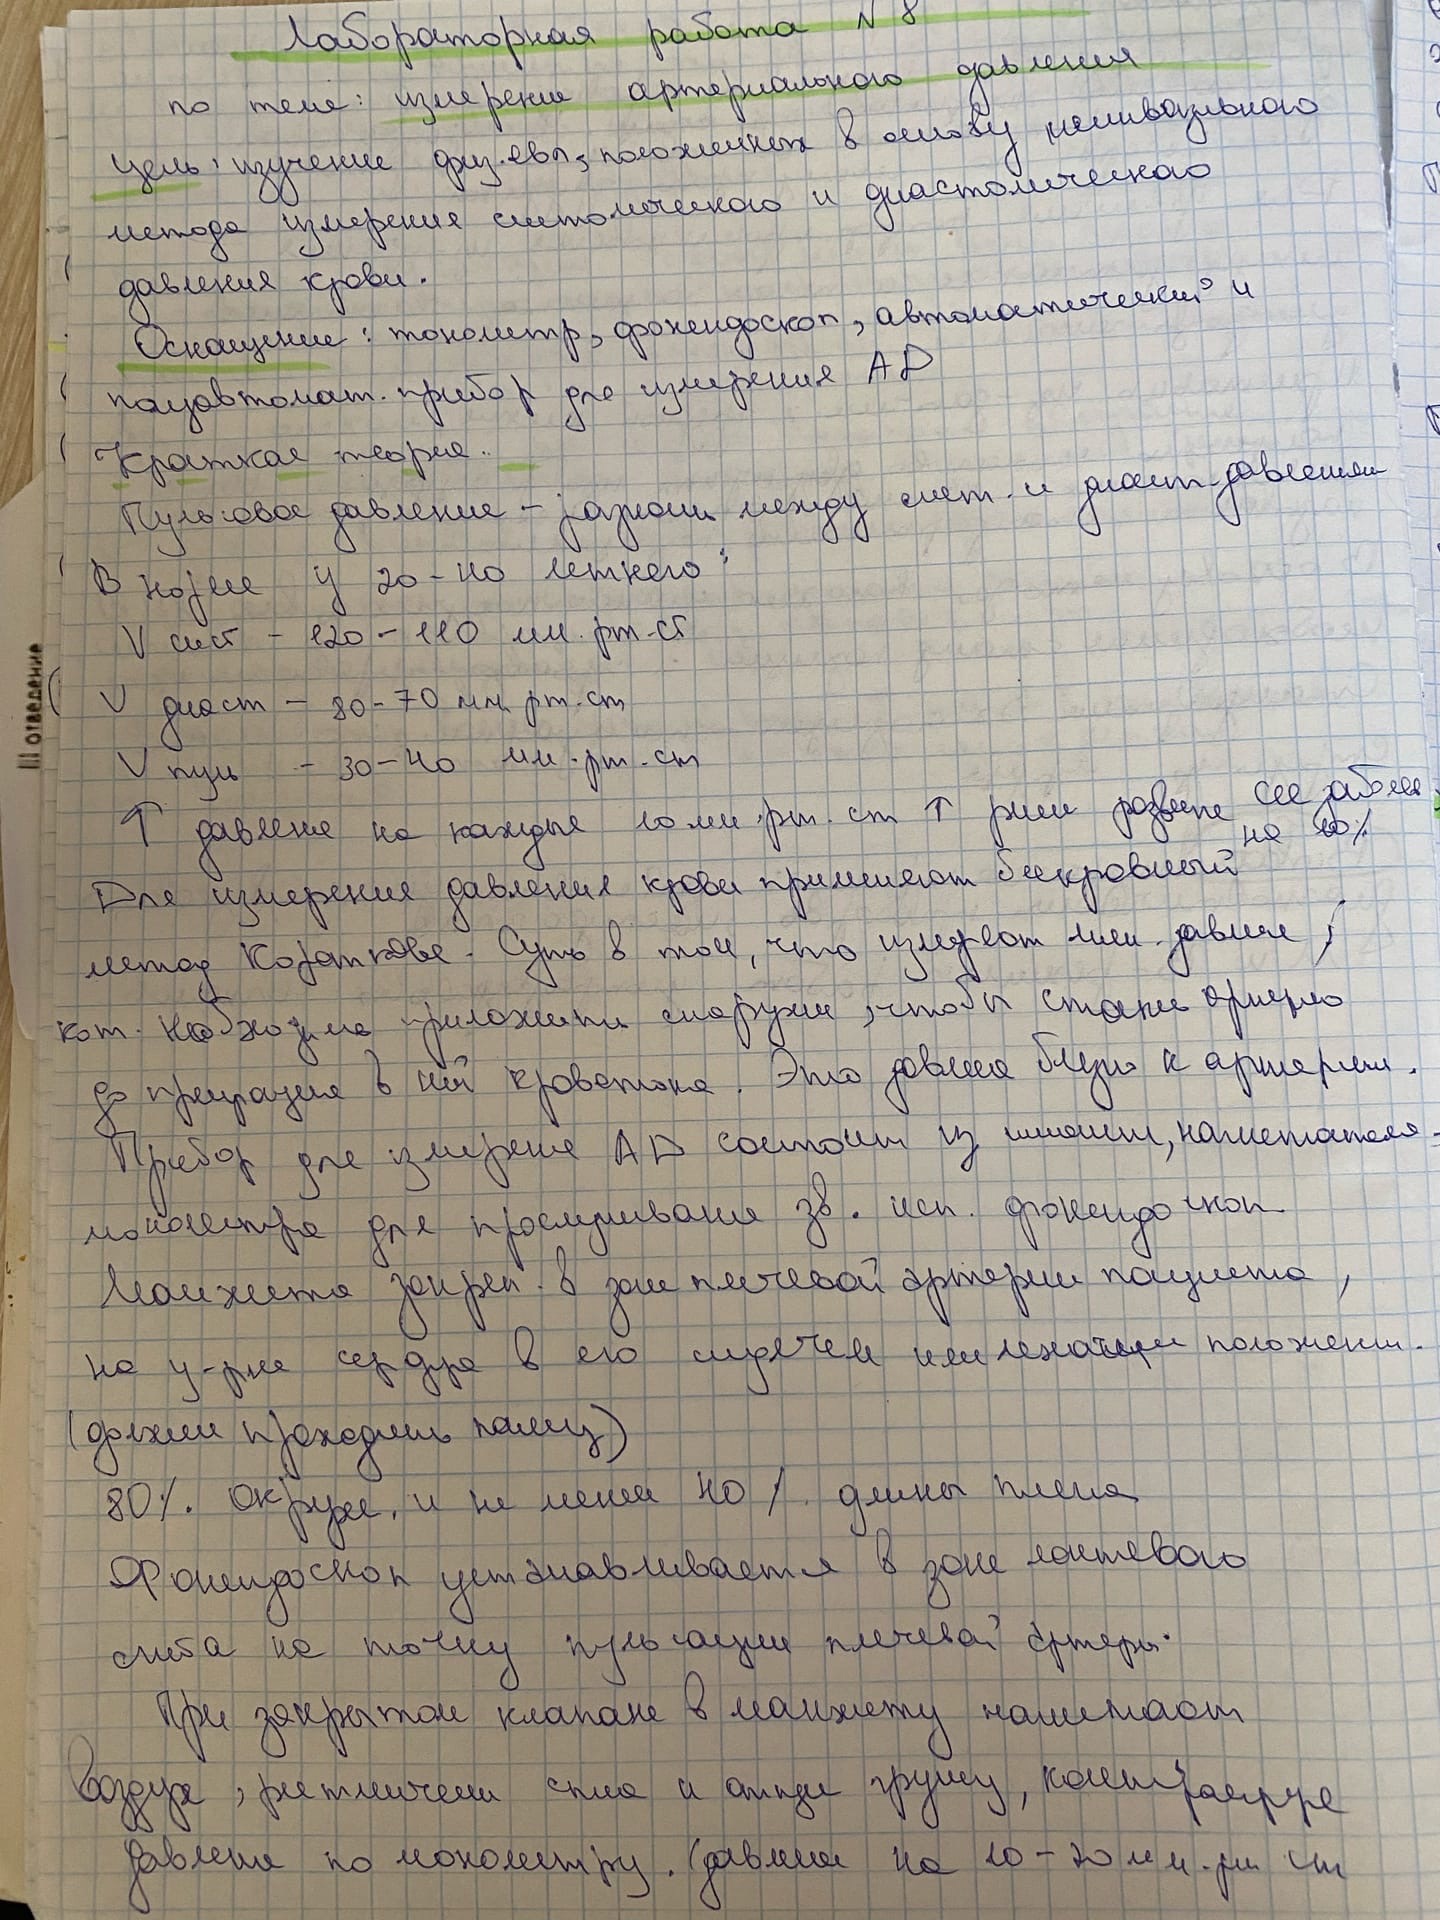 Лабораторная работа N 8
по теме: измерение артериального давления
Цель: изучение физ. явл., положенных в основу неинвазивного
метода измерения систолического и диастолического
давления крови.
Оснащение: тонометр, фонендоскоп, автоматический и
полуавтомат. прибор для измерения АД
Краткая теория.
Пульсовое давление – разность между сист. и диаст. давлением
В норме у 20-40 летнего:
V сист – 120-110 мм. рт. ст
V диаст – 80-70 мм. рт. ст
V пуль – 30-40 мм. рт. ст
↑ давление на каждые 10 мм. рт. ст ↑ риск развите ССС забол
на 10%
Для измерения давления крови применяют бескровный
метод Короткова. Суть в том, что измеряют мин. давлен
кот. необходимо приложить снаружи, чтобы сжать артерию
до прекращения в ней кровотока. Это давлен близко к артериал.
Прибор для измерения АД состоит из манжет, нагнетателя
монометра для прослушивания зв. исп. фонендоскоп
Манжета закреп. в зоне плечевой артерии пациента,
на у-рне сердца в его сидячем или лежачем положении.
(должен проходить палец)
80% окруж. и не менее 40% длины плеча
Фонендоскоп устанавливается в зоне локтевого
сгиба на точку пульсации плечевой артеры.
При закрытом клапане в манжету нагнетают
Воздух, ритмичен сжимая грушу,
давлен по монометру. (давлен на 10-20 мм. рт ст